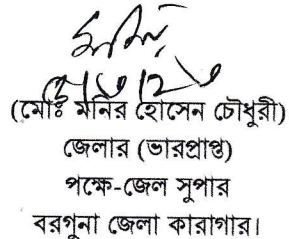 (মোঃ মনির হোসেন চৌধুরী)
জেলার (ভারপ্রাপ্ত)
পক্ষে-জেল সুপার
বরগুনা জেলা কারাগার।